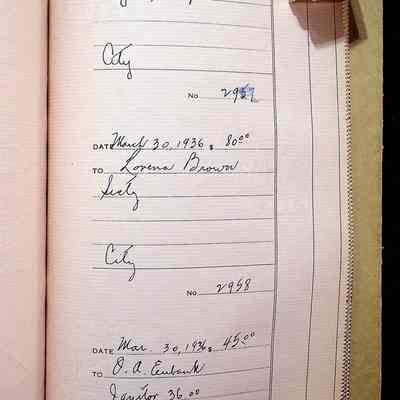 City
No 2957
DATE March 30, 1936 $ 80.00
TO Lovena Brown
Sixty
City
No 2958
DATE Mar. 30, 1936 $ 45.00
TO O. A. Eubank
Janitor 36.00